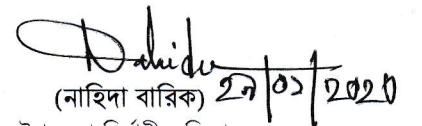 Nahida
(নাহিদা বারিক) ২৭|০১|2020